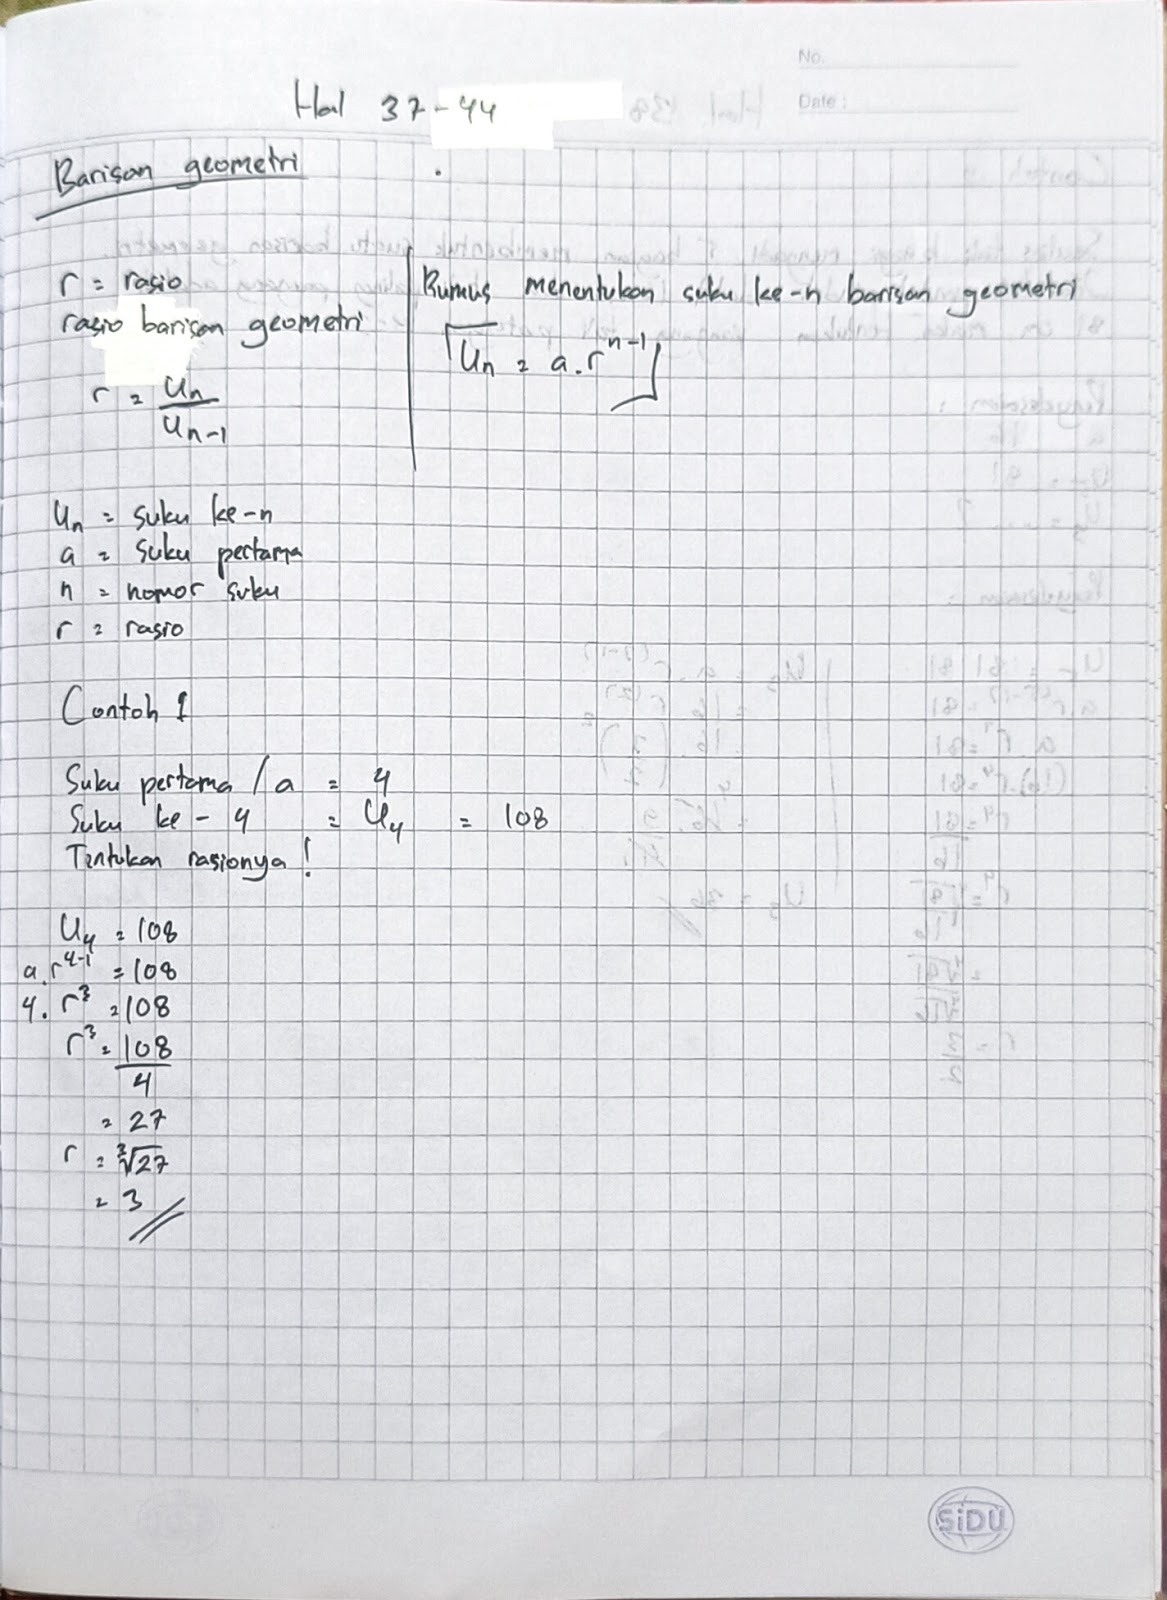 No.
Date :
Hal 37-44
Barisan geometri
r = rasio
rasio barisan geometri
r = Un
Un-1
Rumus menentukan suku ke-n barisan geometri
Un = a.r^n-1
Un = suku ke-n
a = suku pertama
n = nomor suku
r = rasio
Contoh 1
Suku pertama / a = 4
Suku ke-4 = U4 = 108
Tentukan rasionya !
U4 = 108
a.r^4-1 = 108
4. r³ = 108
r³ = 108
4
= 27
r = ³√27
= 3
SiDU